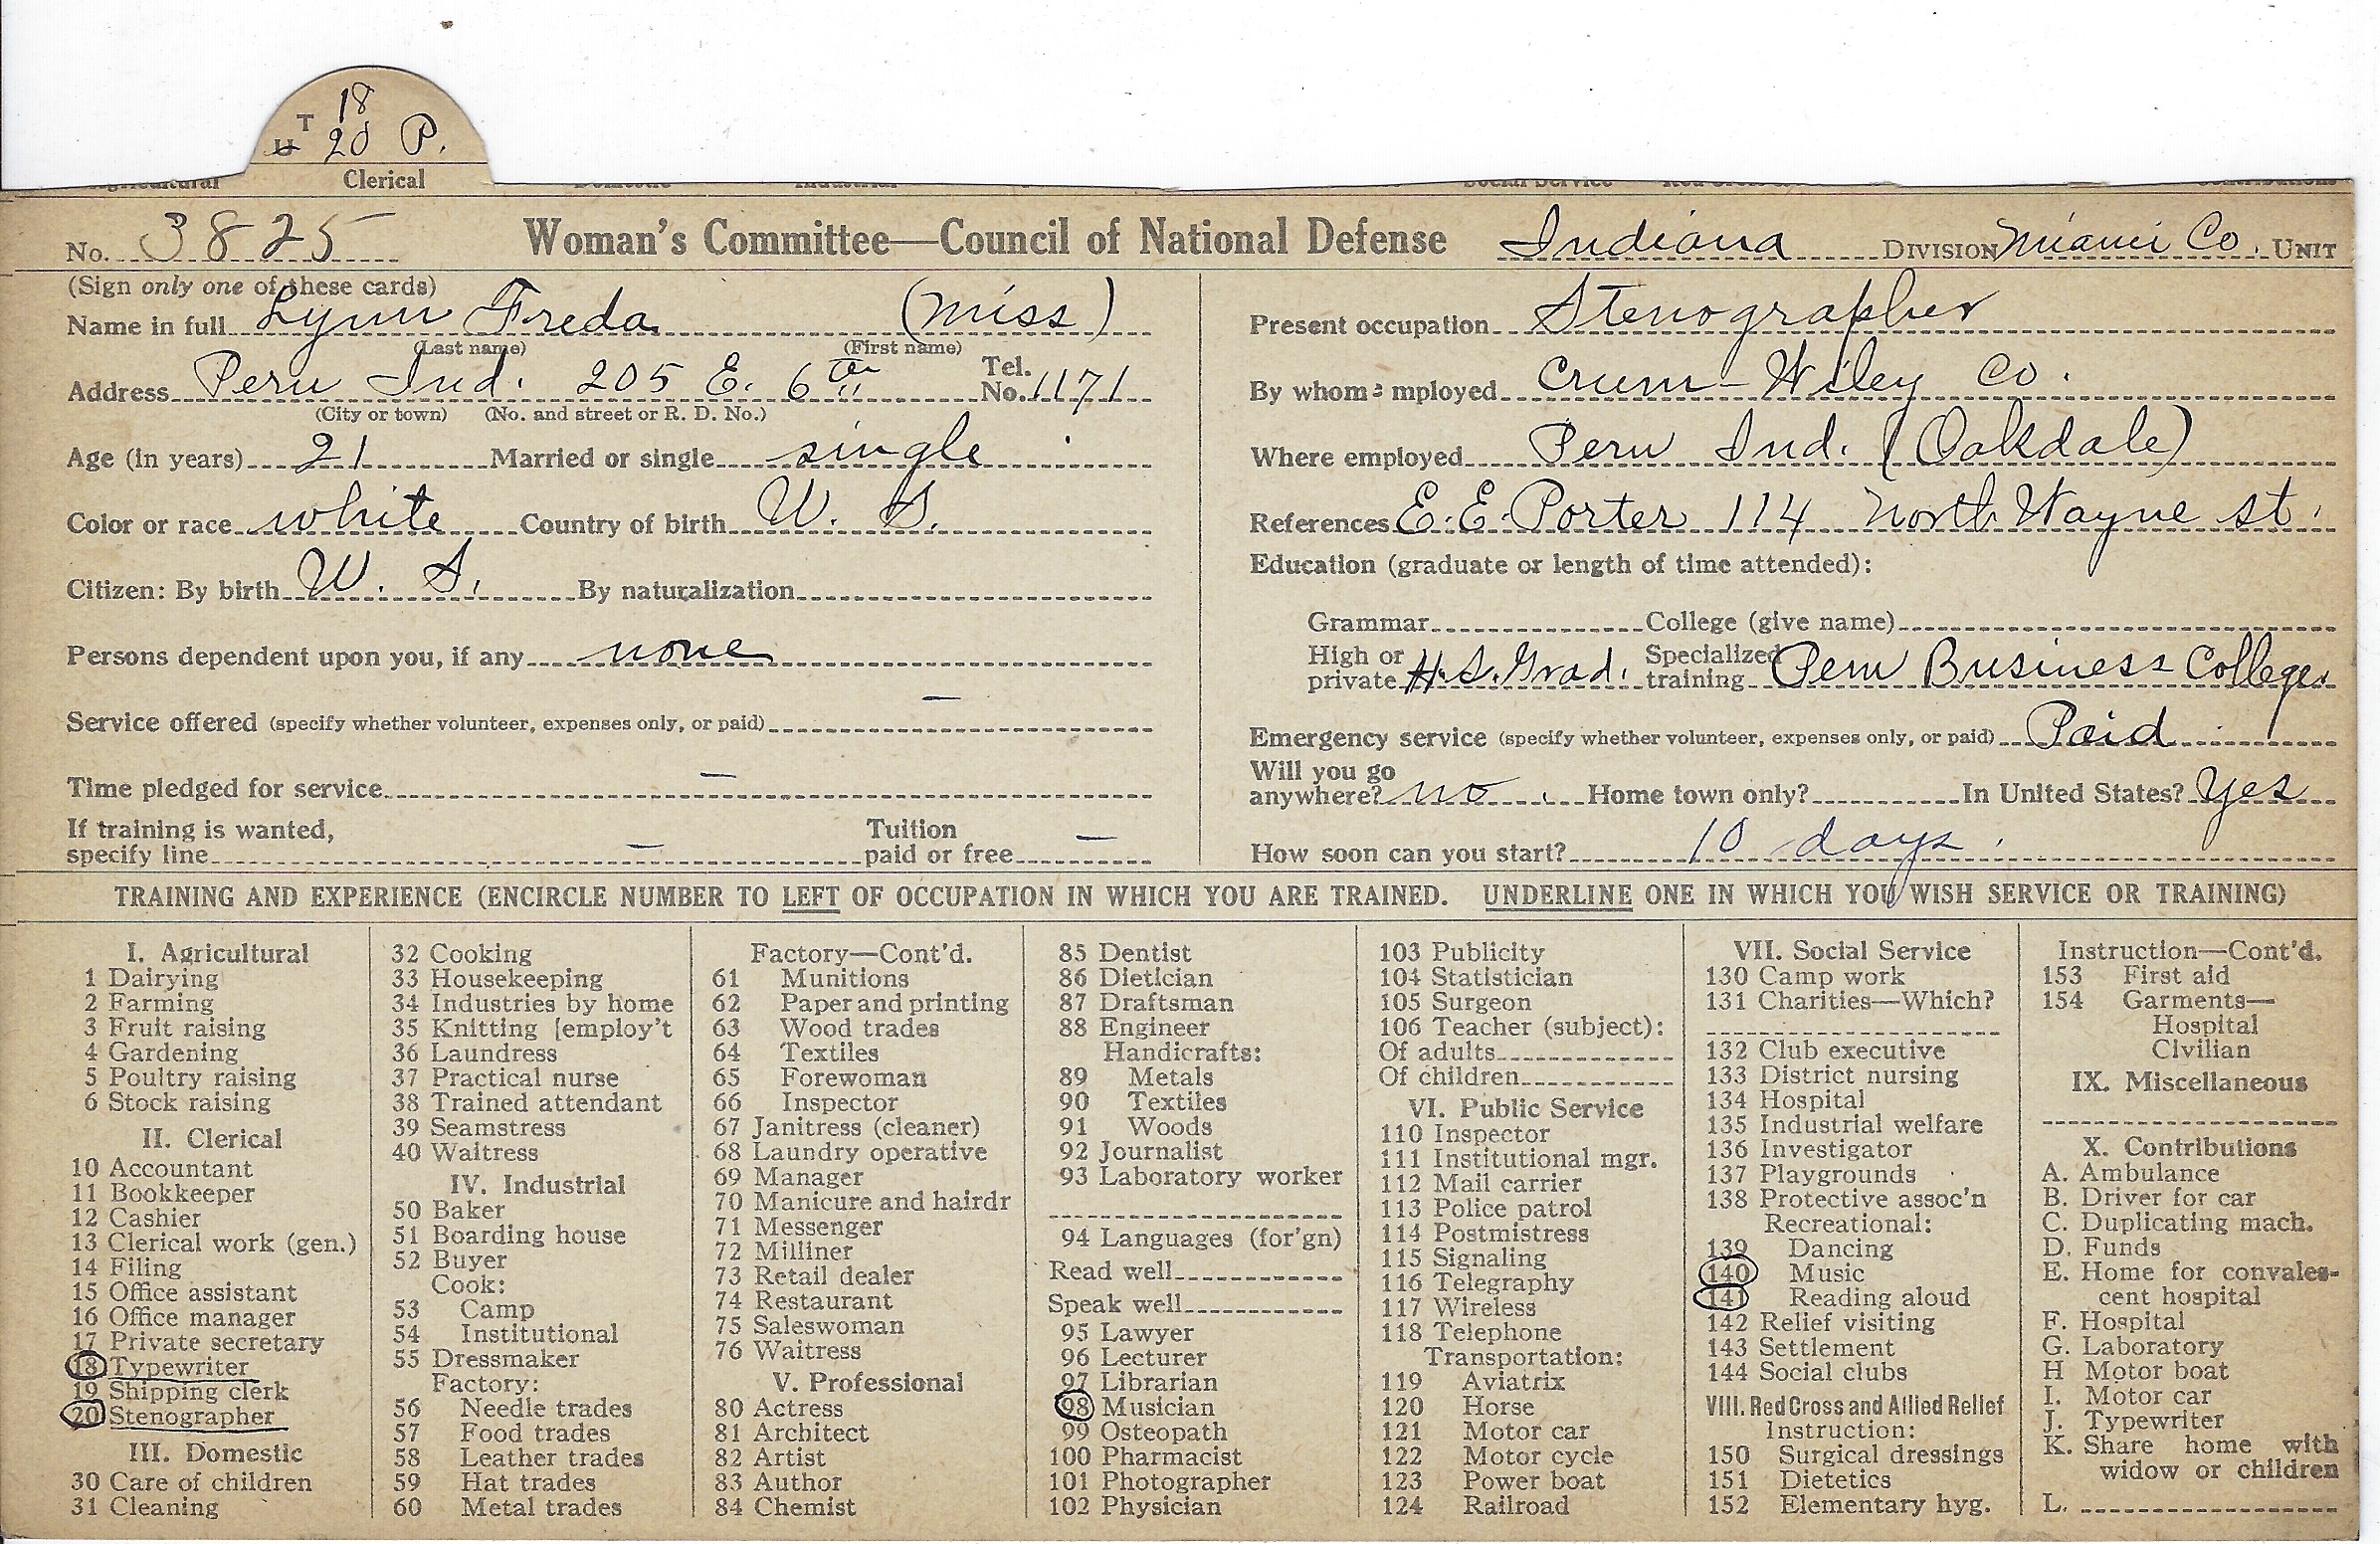 18
T
U 20 P.
Clerical
No. 3825 Woman's Committee—Council of National Defense Indiana DIVISION Miami Co. UNIT
(Sign only one of these cards)
Name in full Lynn Freda (Miss)
(Last name) (First name)
Address Peru Ind. 205 E. 6th Tel. No. 1171
(City or town) (No. and street or R. D. No.)
Age (in years) 21 Married or single single
Color or race white Country of birth U. S.
Citizen: By birth U. S. By naturalization
Persons dependent upon you, if any none
Service offered (specify whether volunteer, expenses only, or paid) —
Time pledged for service —
If training is wanted,
specify line — Tuition paid or free —
Present occupation Stenographer
By whom employed Crum-Wiley Co.
Where employed Peru Ind. (Oakdale)
References E. E. Porter 114 North Wayne st.
Education (graduate or length of time attended):
Grammar College (give name)
High or private H. S. Grad. Specialized training Peru Business College.
Emergency service (specify whether volunteer, expenses only, or paid) Paid
Will you go
anywhere? no Home town only? In United States? Yes
How soon can you start? 10 days.
TRAINING AND EXPERIENCE (ENCIRCLE NUMBER TO LEFT OF OCCUPATION IN WHICH YOU ARE TRAINED. UNDERLINE ONE IN WHICH YOU WISH SERVICE OR TRAINING)
I. Agricultural
1 Dairying
2 Farming
3 Fruit raising
4 Gardening
5 Poultry raising
6 Stock raising
II. Clerical
10 Accountant
11 Bookkeeper
12 Cashier
13 Clerical work (gen.)
14 Filing
15 Office assistant
16 Office manager
17 Private secretary
18 Typewriter
19 Shipping clerk
20 Stenographer
III. Domestic
30 Care of children
31 Cleaning
32 Cooking
33 Housekeeping
34 Industries by home
35 Knitting [employ't
36 Laundress
37 Practical nurse
38 Trained attendant
39 Seamstress
40 Waitress
IV. Industrial
50 Baker
51 Boarding house
52 Buyer
Cook:
53 Camp
54 Institutional
55 Dressmaker
Factory:
56 Needle trades
57 Food trades
58 Leather trades
59 Hat trades
60 Metal trades
Factory—Cont'd.
61 Munitions
62 Paper and printing
63 Wood trades
64 Textiles
65 Forewoman
66 Inspector
67 Janitress (cleaner)
68 Laundry operative
69 Manager
70 Manicure and hairdr
71 Messenger
72 Milliner
73 Retail dealer
74 Restaurant
75 Saleswoman
76 Waitress
V. Professional
80 Actress
81 Architect
82 Artist
83 Author
84 Chemist
85 Dentist
86 Dietician
87 Draftsman
88 Engineer
Handicrafts:
89 Metals
90 Textiles
91 Woods
92 Journalist
93 Laboratory worker
94 Languages (for'gn)
Read well
Speak well
95 Lawyer
96 Lecturer
97 Librarian
98 Musician
99 Osteopath
100 Pharmacist
101 Photographer
102 Physician
103 Publicity
104 Statistician
105 Surgeon
106 Teacher (subject):
Of adults
Of children
VI. Public Service
110 Inspector
111 Institutional mgr.
112 Mail carrier
113 Police patrol
114 Postmistress
115 Signaling
116 Telegraphy
117 Wireless
118 Telephone
Transportation:
119 Aviatrix
120 Horse
121 Motor car
122 Motor cycle
123 Power boat
124 Railroad
VII. Social Service
130 Camp work
131 Charities—Which?
132 Club executive
133 District nursing
134 Hospital
135 Industrial welfare
136 Investigator
137 Playgrounds
138 Protective assoc'n
Recreational:
139 Dancing
140 Music
141 Reading aloud
142 Relief visiting
143 Settlement
144 Social clubs
VIII. Red Cross and Allied Relief
Instruction:
150 Surgical dressings
151 Dietetics
152 Elementary hyg.
Instruction—Cont'd.
153 First aid
154 Garments—
Hospital
Civilian
IX. Miscellaneous
X. Contributions
A. Ambulance
B. Driver for car
C. Duplicating mach.
D. Funds
E. Home for convales-
cent hospital
F. Hospital
G. Laboratory
H Motor boat
I. Motor car
J. Typewriter
K. Share home with
widow or children
L.